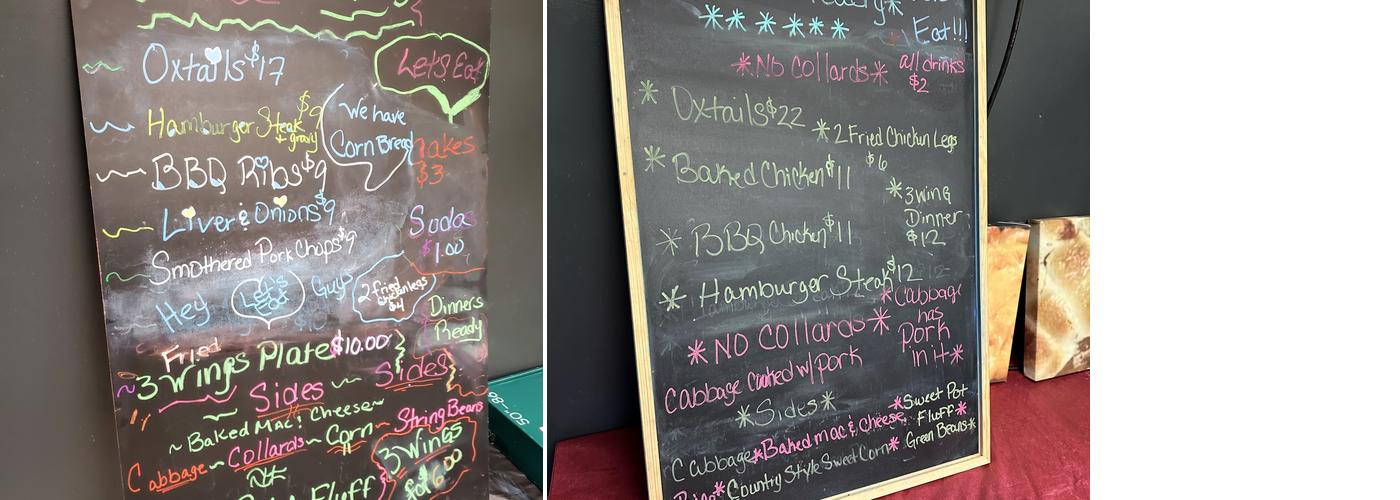 Oxtails $17
Let's Eat
Hamburger Steak $9
+ gravy
We have
Corn Bread
BBQ Ribs $9
$3
Liver & Onions $9
Sodas
$1.00
Smothered Pork Chops $9
Hey
Let's
Eat
Guys
2 fried
chicken legs
$4
Dinners
Ready
Fried
3 Wings Plate $10.00
Sides
Sides
~ Baked Mac & Cheese ~
String Beans
Cabbage ~ Collards ~ Corn ~
3 Wings
$6.00
Fluff
Eat!!!
*No Collards*
all drinks
$2
* Oxtails $22
* 2 Fried Chicken Legs
$6
* Baked Chicken $11
* 3 wing
Dinner
$12
* BBQ Chicken $11
* Hamburger Steak $12
* NO Collards *
* Cabbage
has
Pork
in it *
Cabbage Cooked w/ pork
* Sides *
* Sweet Pot
Fluff *
Cabbage * Baked mac & cheese
* Green Beans *
Country Style Sweet Corn *